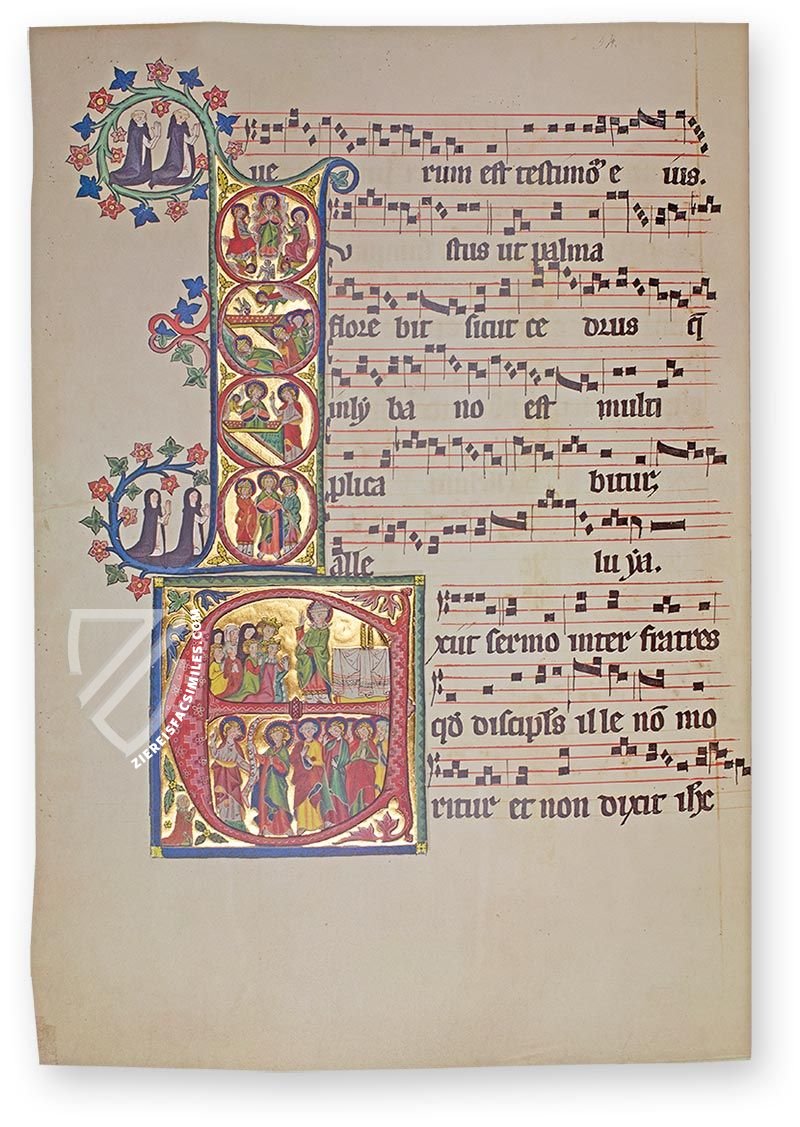 ue rum est testimoˉ e ius.
stus ut palma
flore bit sicut ce drus q̄
in lẏ ba no est multi
plica bitur,
alle lu ẏa.
xut sermo inter fratres
qḋ discipls ille nō mo
ritur et non dixit ihc
ZIEREISFACSIMILES.COM